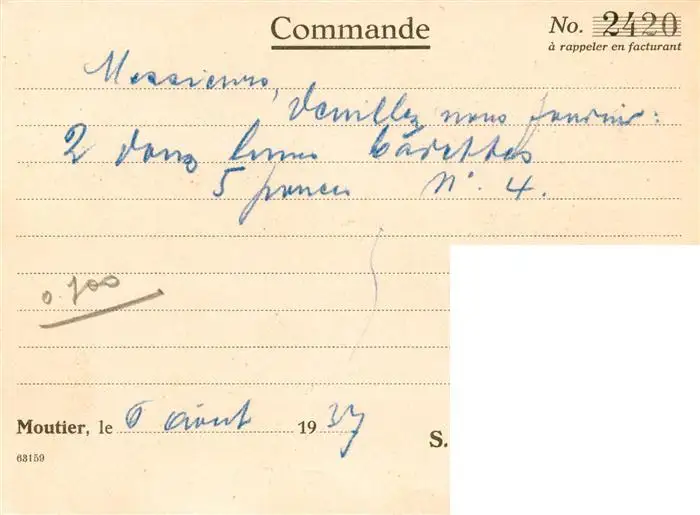 Commande
No. 2420
à rappeler en facturant
Messieurs,
Veuillez nous fournir:
2 douz limes barettes
5 pouces N°. 4.
0.700
Moutier, le 6 Août 1937
63159
S.